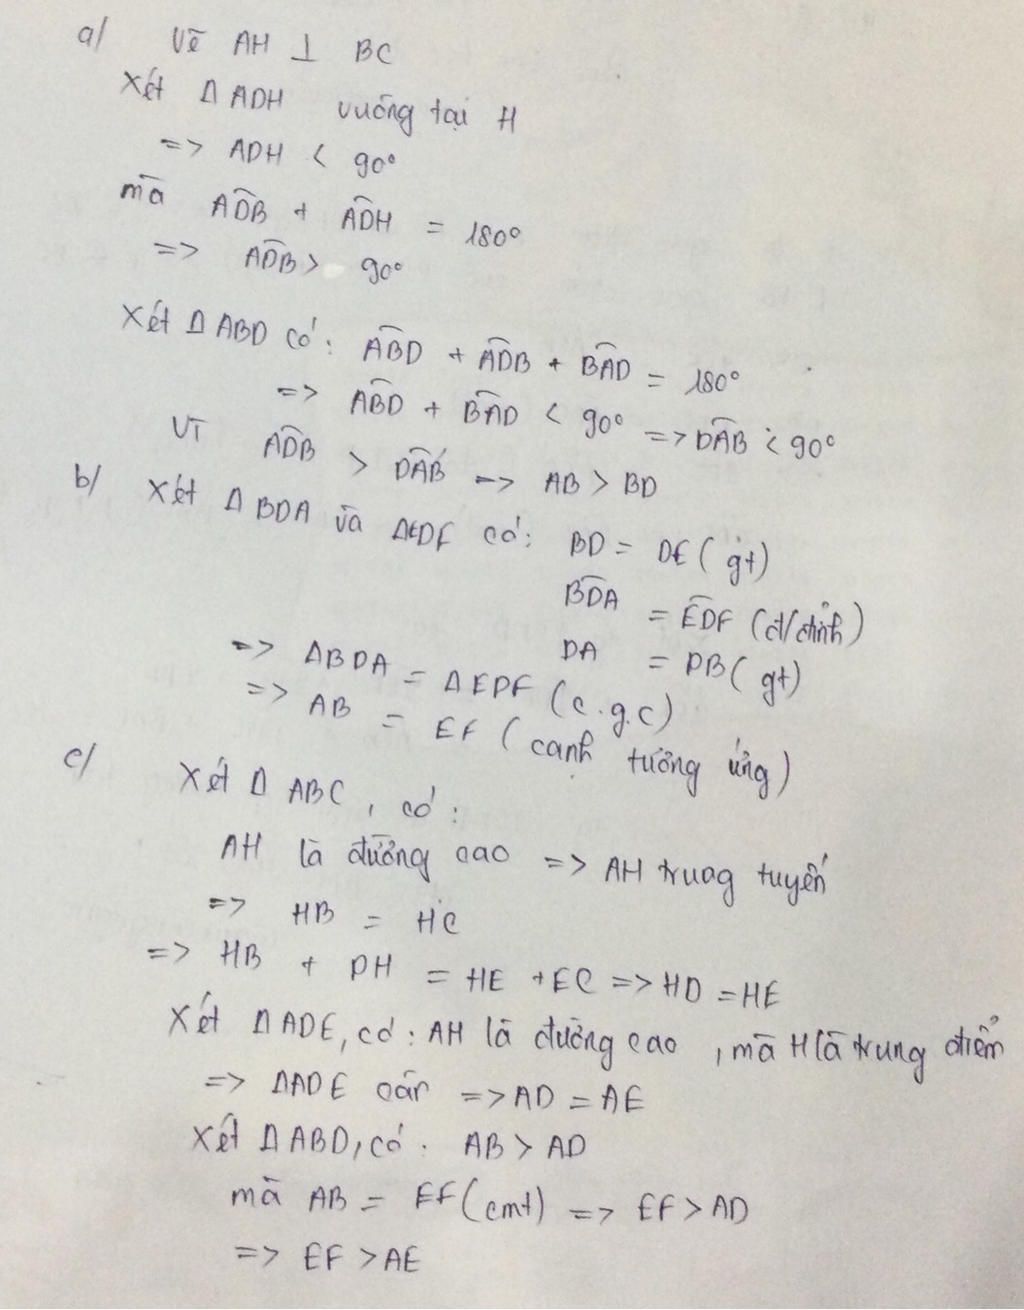 a/ Vẽ AH ⊥ BC
Xét Δ ADH vuông tại H
=> ADH < 90°
mà ADB̂ + ADĤ = 180°
=> ADB̂ > 90°
Xét Δ ABD có: ABD̂ + ADB̂ + BAD̂ = 180°
=> ABD̂ + BAD̂ < 90° => DAB̂ < 90°
Vì ADB̂ > DAB̂ => AB > BD
b/ Xét Δ BDA và ΔEDF có: BD = DE (gt)
BDÂ = EDF̂ (đ/đỉnh)
DA = DB (gt)
=> ΔBDA = ΔEDF (c.g.c)
=> AB = EF (cạnh tương ứng)
c/ Xét Δ ABC, có:
AH là đường cao => AH trung tuyến
=> HB = HC
=> HB + DH = HE + EC => HD = HE
Xét ΔADE, có: AH là đường cao, mà H là trung điểm
=> ΔADE cân => AD = AE
Xét ΔABD, có: AB > AD
mà AB = EF (cmt) => EF > AD
=> EF > AE